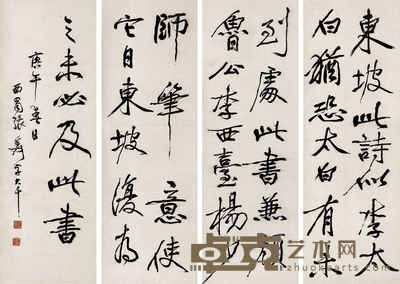 東坡此詩似李太
白猶恐太白有未
到處此書兼顏
魯公李西臺楊少
師筆意使
它日東坡復為
之未必及此書
庚午暮春日
西蜀張爰字大千
卓克艺术网
zhuokearts.com